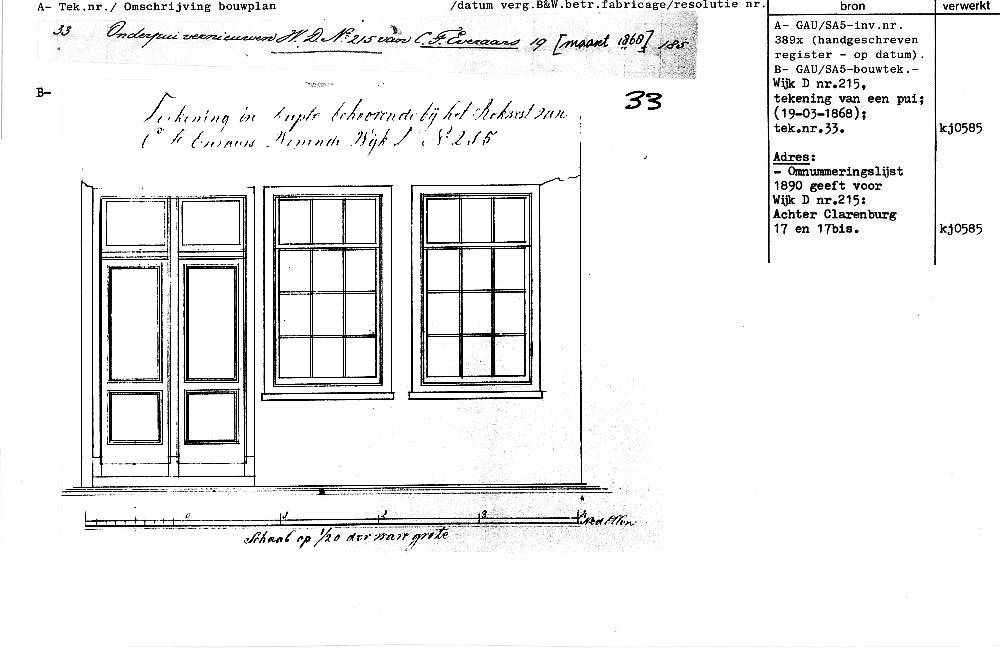 A- Tek.nr./ Omschrijving bouwplan /datum verg.B&W.betr.fabricage/resolutie nr. bron verwerkt
33 Onderpui vernieuwen W. D. No 215 van C. F. Everaars 19 [maart 1868] 185
A- GAU/SA5-inv.nr.
389x (handgeschreven
register - op datum).
B- GAU/SA5-bouwtek.-
Wijk D nr.215,
tekening van een pui;
(19-03-1868);
tek.nr.33. kj0585
Adres:
- Omnummeringslijst
1890 geeft voor
Wijk D nr.215:
Achter Clarenburg
17 en 17bis. kj0585
B-
33
Teekening in duplo behoorende bij het Rekwest van
Wijk No 215
0 1 2 3 4 Ned Ellen
Schaal op 1/20 der ware grote